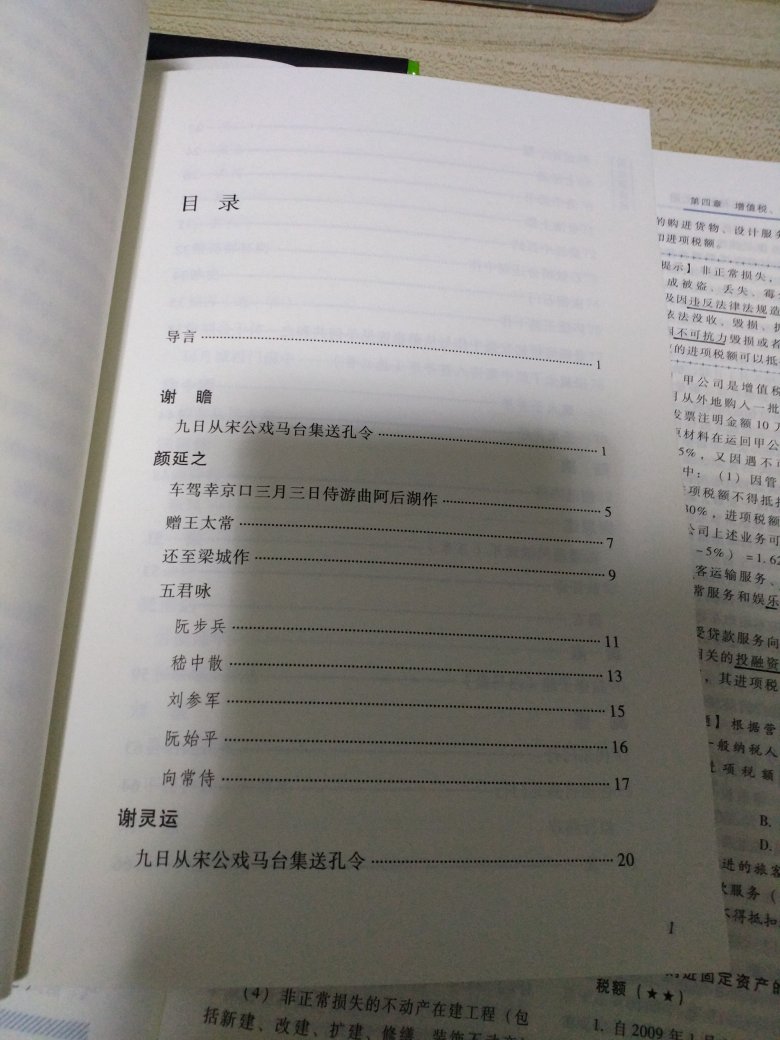 目 录
导言 1
谢 瞻
九日从宋公戏马台集送孔令 1
颜延之
车驾幸京口三月三日侍游曲阿后湖作 5
赠王太常 7
还至梁城作 9
五君咏
阮步兵 11
嵇中散 13
刘参军 15
阮始平 16
向常侍 17
谢灵运
九日从宋公戏马台集送孔令 20
1
第四章 增值税、
的购进货物、设计服务
扣进项税额。
提示】非正常损失，
成被盗、丢失、霉
及因违反法律法规造
依法没收、毁损、拆
不可抗力毁损或者
的进项税额可以抵
甲公司是增值税
从外地购入一批
发票注明金额 10 万
材料在运回甲公
5%，又因遇不可
中：（1）因管
项税额不得抵扣
30%，进项税额
公司上述业务可
-5%）=1.62
客运输服务、
常服务和娱乐
受贷款服务向
相关的投融资
，其进项税
】根据营
一般纳税人
进项税额
B.
D.
进的旅客
服务（
不得抵扣
进固定资产的
税额（★★）
1. 自 2009 年 1 月
（4）非正常损失的不动产在建工程（包
括新建、改建、扩建、修缮、装饰不动产